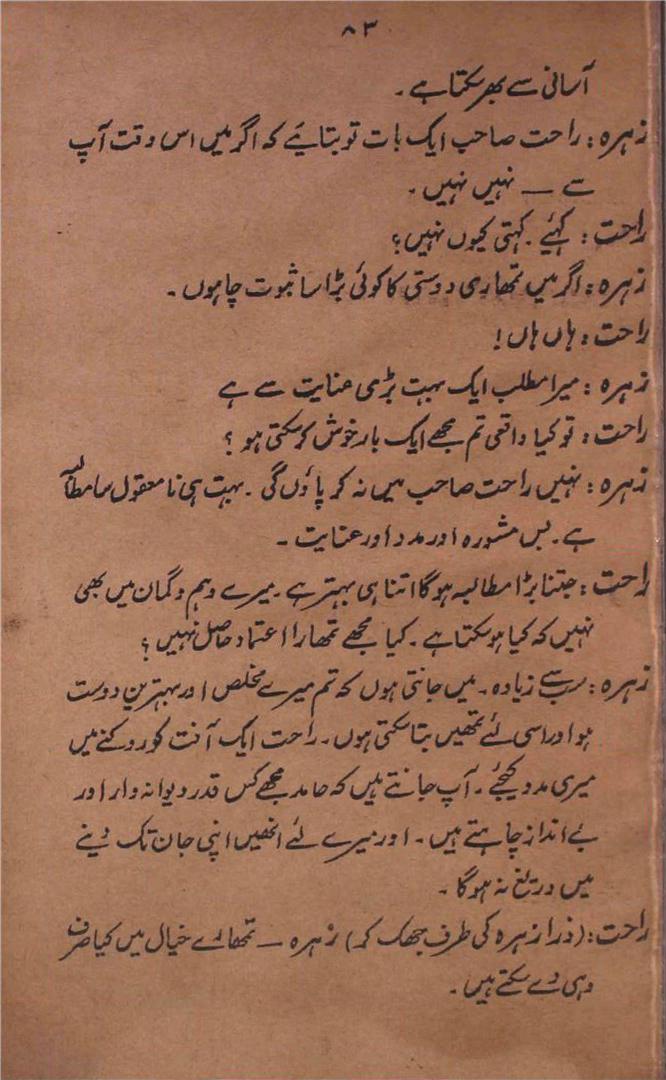 ۸۳
آسانی سے بھر سکتا ہے۔
زہرہ: راحت صاحب ایک بات تو بتایئے کہ اگر میں اس وقت آپ
سے — نہیں نہیں۔
راحت: کہئے۔ کہتی کیوں نہیں؟
زہرہ: اگر میں تمھاری دوستی کا کوئی بڑا سا ثبوت چاہوں۔
راحت: ہاں ہاں!
زہرہ: میرا مطلب ایک بہت بڑی عنایت سے ہے
راحت: تو کیا واقعی تم مجھے ایک بار خوش کر سکتی ہو؟
زہرہ: نہیں راحت صاحب میں نہ کر پاؤں گی۔ بہت ہی نامعقول سا مطالبہ
ہے۔ بس مشورہ اور مدد اور عنایت۔
راحت: جتنا بڑا مطالبہ ہوگا اتنا ہی بہتر ہے۔ میرے وہم و گمان میں بھی
نہیں کہ کیا ہو سکتا ہے۔ کیا مجھے تمھارا اعتماد حاصل نہیں؟
زہرہ: سب سے زیادہ۔ میں جانتی ہوں کہ تم میرے مخلص اور بہترین دوست
ہو اور اسی لئے تمھیں بتا سکتی ہوں۔ راحت ایک آفت کو روکنے میں
میری مدد کیجئے۔ آپ جانتے ہیں کہ حامد مجھے کس قدر دیوانہ وار اور
بے انداز چاہتے ہیں۔ اور میرے لئے انھیں اپنی جان تک دینے
میں دریغ نہ ہوگا۔
راحت: (ذرا زہرہ کی طرف جھک کر) زہرہ — تمھارے خیال میں کیا صرف
وہی دے سکتے ہیں۔